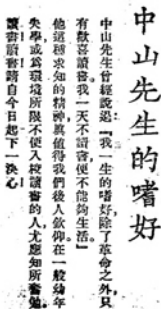 中山先生的嗜好
中山先生曾經說過『我一生的嗜好除了革命之外只
有歡喜讀書我一天不讀書便不能夠生活』
他這種求知的精神眞值得我們後人欽仰在一般幼年
失學或爲環境所限不便入校讀書的人尤應知所奮勉
讀書讀書請自今日起下一決心